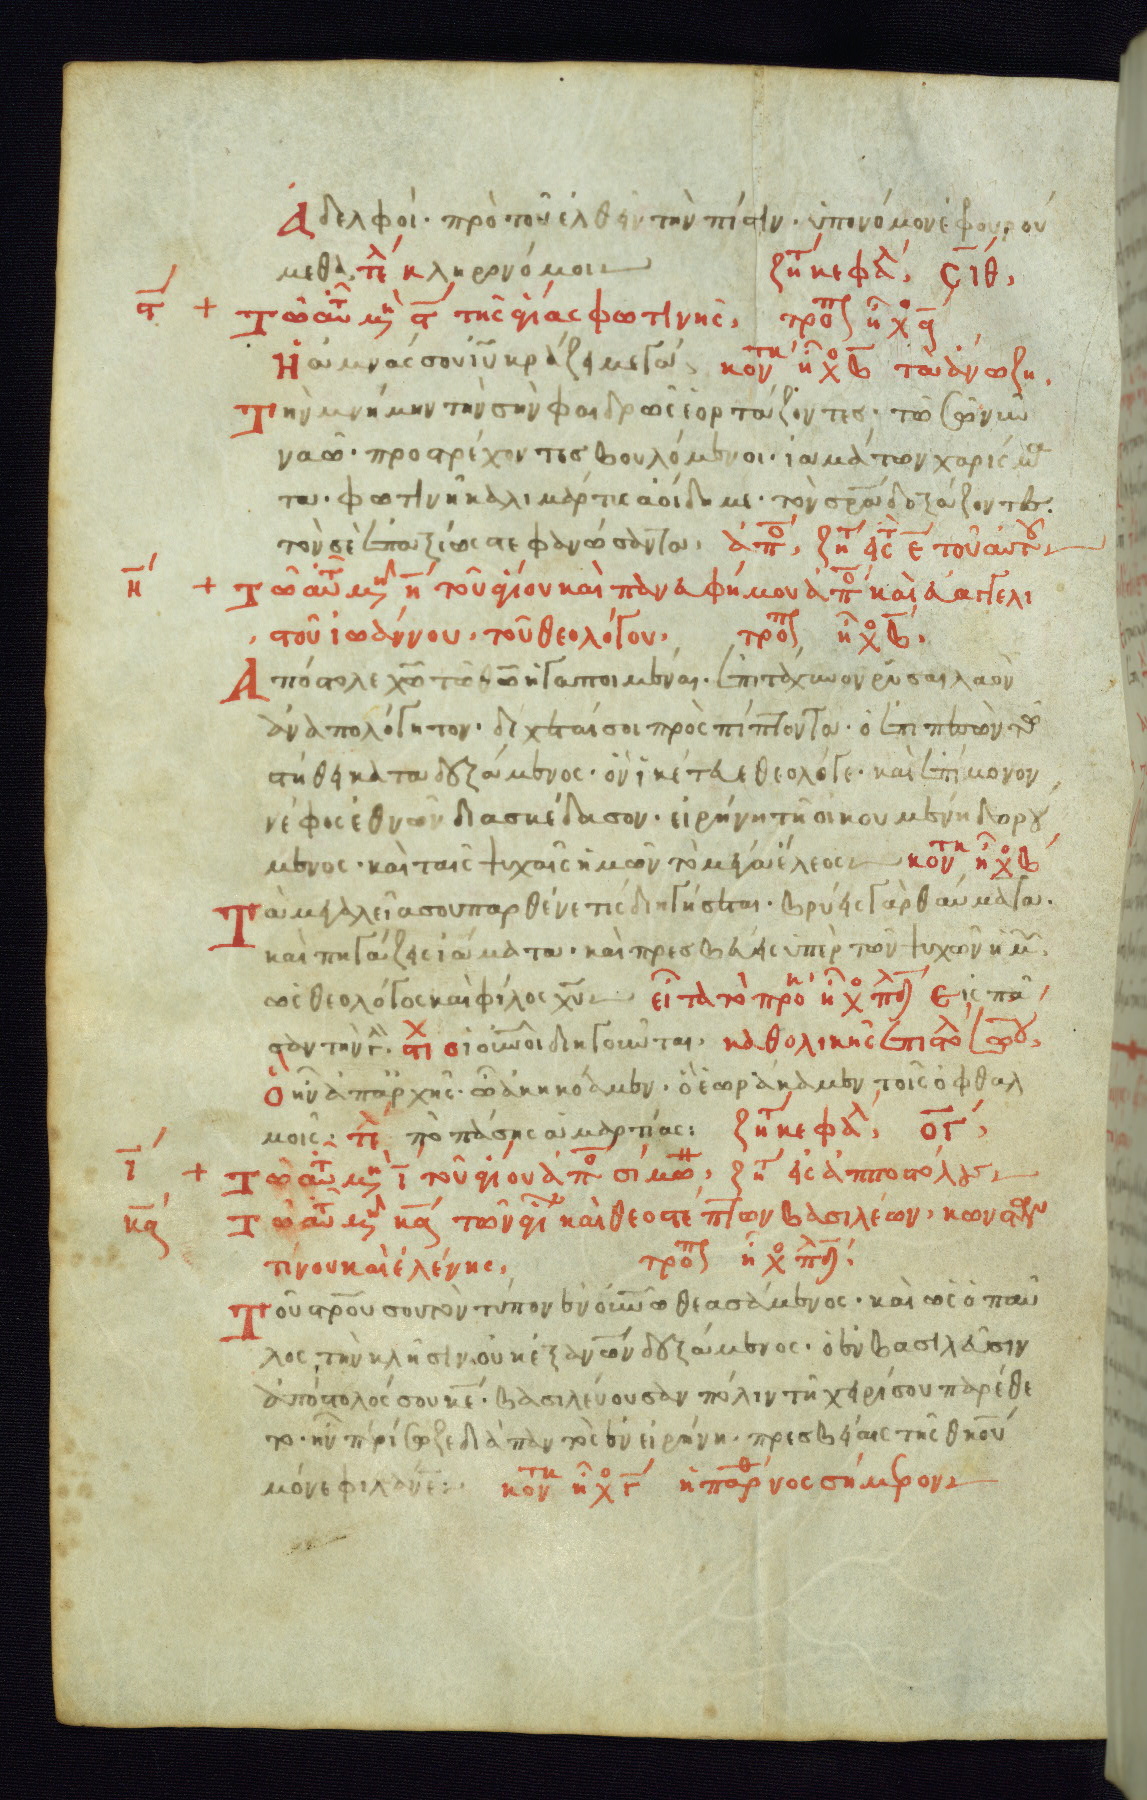 Ἀδελφοὶ· πρὸ τοῦ ἐλθεῖν τὴν πίστιν· ὑπὸ νόμον ἐφρουρού
μεθα, τελ κληρονόμοι ζητ κεφαλ, σιθ,
ϛ + Τῷ αὐτῷ μηνὶ ϛ τῆς ἁγίας φωτινῆς, τροπ ἦχος δ
Ἡ ἀμνάς σου ἰῦ κράζει μεγάλ κοντ ἦχος β τὰ ἄνω ζη,
Τὴν μνήμην τὴν σὴν φαιδρῶς ἑορτάζοντες· τῷ
ναῷ· προστρέχοντες βουλόμενοι· ἰαμάτων χαρίσμα
τα· φωτινὴ καλλιμάρτυς ἀοίδιμε· τὸν σρα δοξάζοντες·
τόν σε ἐπαξίως στεφανώσαντα, ἀπο, ζητ εἰς τ ε τοῦ αὐτοῦ
η + Τῷ αὐτῷ μηνὶ η τοῦ ἁγίου καὶ πανευφήμου ἀπο καὶ εὐαγγελι
στοῦ ἰωάννου, τοῦ θεολόγου, τροπ ἦχος β,
Ἀπόστολε χῶ τῶ θῶ ἠγαπημένε, ἐπιτάχυνον ῥῦσαι λαὸν
ἀναπολόγητον· δέχεταί σοι προσπίπτοντα· ὁ ἐπιπεσὼν τῷ
στήθει καταδεξάμενος· ὃν ἱκέτευε θεολόγε· καὶ ἐπίμονον
νέφος ἐθνῶν διασκέδασον· εἰρήνη τῇ οἰκουμένη δωρού
μενος· καὶ ταῖς ψυχαῖς ἡμῶν τὸ μέγα ἔλεος κοντ ἦχος β
Τὰ μεγαλεῖα σου παρθένε τίς διηγήσεται· βρύεις γὰρ θαύματα·
καὶ πηγάζεις ἰάματα· καὶ πρεσβεύεις ὑπὲρ τῶν ψυχῶν ἡμῶν,
ὡς θεολόγος καὶ φίλος χῦ εἶτα τὸ προκ ἦχος πλ δ Εἰς πᾶ
σαν τὴν γῆν· στι οἱ οὐνοὶ διηγοῦνται, καθολικῆς ἐπιστολ
Ὃ ἦν ἀπ' ἀρχῆς· ὃ ἀκηκόαμεν· ὃ ἑωράκαμεν τοῖς ὀφθαλ
μοῖς· τελ ἀπὸ πάσης ἁμαρτίας: ζητ κεφαλ, ογ,
ι + Τῷ αὐτῷ μηνὶ ι τοῦ ἁγίου ἀπο σίμων, ζητ εἰς ἀποστόλους
κα Τῷ αὐτῷ μηνὶ κα τῶν ἁγίων καὶ θεοστέπτων βασιλέων, κωνσταν
τίνου καὶ ἑλένης, τροπ ἦχος πλ δ,
Τοῦ στροῦ σου τὸν τύπον ἐν οὐνῷ θεασάμενος· καὶ ὡς ὁ παῦ
λος τὴν κλῆσιν οὐκ ἐξ ἀνων δεξάμενος· ὁ ἐν βασιλεῦσιν
ἀπόστολός σου κε· βασιλεύουσαν πόλιν τῇ χειρί σου παρέθε
το· ἣν περίσωζε διὰ παντὸς ἐν εἰρήνη· πρεσβείαις τῆς θκου
μόνε φιλάνε: κοντ ἦχος γ ἡ παρθένος σήμερον